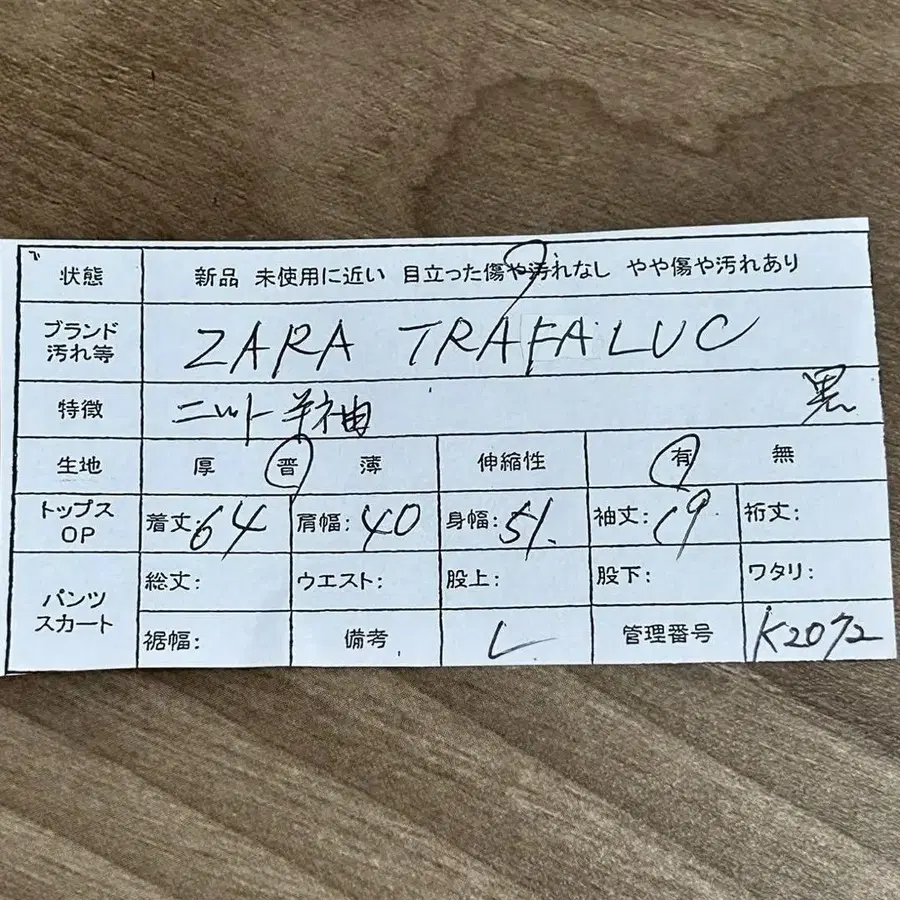 状態 新品 未使用に近い 目立った傷や汚れなし やや傷や汚れあり
ブランド
汚れ等 ZARA TRAFALUC
特徴 ニット 半袖 黒
生地 厚 普 薄 伸縮性 有 無
トップス
OP 着丈:64 肩幅:40 身幅:51. 袖丈:19. 裄丈:
パンツ
スカート 総丈: ウエスト: 股上: 股下: ワタリ:
裾幅: 備考 L 管理番号 K2072